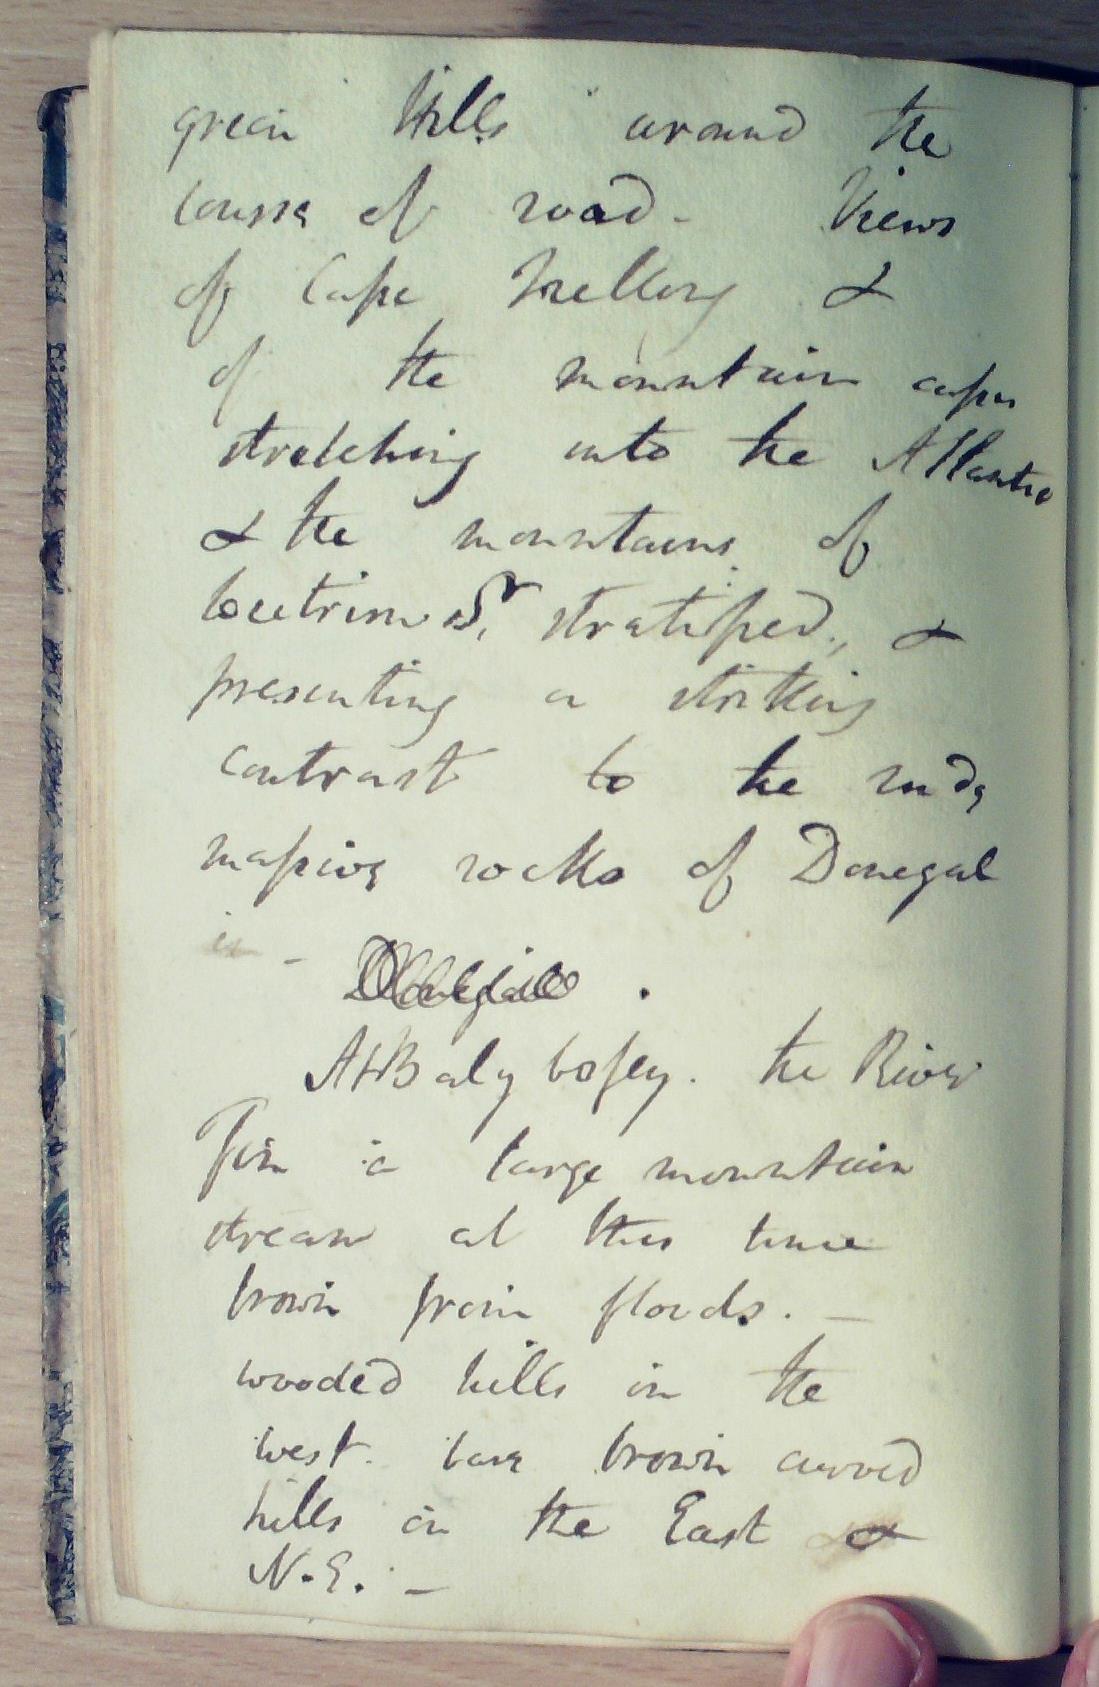 green hills around the
course of road - Views
of Cape Melling &
of the mountain capes
stretching into the Atlantic
& the mountains of
Leetrim Sr. stratified, &
presenting a striking
contrast to the rude
massive rocks of Donegal
-
At Balybofey. the River
Fin is a large mountain
stream at this time
brown from floods. -
wooded hills in the
west. bare brown curved
hills in the East &
N.E. -